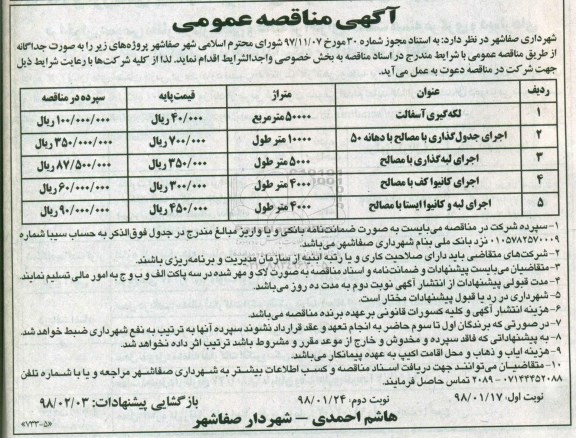 آگهی مناقصه عمومی
شهرداری صفاشهر در نظر دارد: به استناد مجوز شماره ۳۰ مورخ ۹۷/۱۱/۰۷ شورای محترم اسلامی شهر صفاشهر پروژه‌های زیر را به صورت جداگانه
از طریق مناقصه عمومی با شرایط مندرج در اسناد مناقصه به بخش خصوصی واجدالشرایط اقدام نماید. لذا از کلیه شرکت‌ها با رعایت شرایط ذیل
جهت شرکت در مناقصه دعوت به عمل می‌آید.
ردیف عنوان متراژ قیمت پایه سپرده در مناقصه
۱ لکه‌گیری آسفالت ۵۰۰۰۰ مترمربع ۴۰/۰۰۰ ریال ۱۰۰/۰۰۰/۰۰۰ ریال
۲ اجرای جدول‌گذاری با مصالح با دهانه ۵۰ ۱۰۰۰۰ متر طول ۷۰۰/۰۰۰ ریال ۳۵۰/۰۰۰/۰۰۰ ریال
۳ اجرای لبه‌گذاری با مصالح ۵۰۰۰ متر طول ۳۵۰/۰۰۰ ریال ۸۷/۵۰۰/۰۰۰ ریال
۴ اجرای کانیوا کف با مصالح ۴۰۰۰ متر طول ۳۰۰/۰۰۰ ریال ۶۰/۰۰۰/۰۰۰ ریال
۵ اجرای لبه و کانیوا ایستا با مصالح ۴۰۰۰ متر طول ۴۵۰/۰۰۰ ریال ۹۰/۰۰۰/۰۰۰ ریال
۱- سپرده شرکت در مناقصه می‌بایست به صورت ضمانت‌نامه بانکی و یا واریز مبالغ مندرج در جدول فوق‌الذکر به حساب سیبا شماره
۰۱۰۵۷۸۲۵۷۰۰۰۹ نزد بانک ملی بنام شهرداری صفاشهر می‌باشد.
۲- شرکت‌های متقاضی باید دارای صلاحیت کاری و یا رتبه ابنیه از سازمان مدیریت و برنامه‌ریزی باشند.
۳- متقاضیان می‌بایست پیشنهادات و ضمانت‌نامه و اسناد مناقصه به صورت لاک و مهر شده در سه پاکت الف و ب و ج به امور مالی تسلیم نمایند.
۴- مدت قبولی پیشنهادات از انتشار آگهی نوبت دوم به مدت ده روز می‌باشد.
۵- شهرداری در رد یا قبول پیشنهادات مختار است.
۶- هزینه انتشار آگهی و کلیه کسورات قانونی برعهده برنده مناقصه می‌باشد.
۷- در صورتی که برندگان اول تا سوم حاضر به انجام تعهد و عقد قرارداد نشوند سپرده آنها به ترتیب به نفع شهرداری ضبط خواهد شد.
۸- به پیشنهاداتی که فاقد سپرده و مخدوش و خارج از موعد مقرر و مشروط باشد ترتیب اثر داده نخواهد شد.
۹- هزینه ایاب و ذهاب و محل اقامت اکیپ به عهده پیمانکار می‌باشد.
۱۰- متقاضیان می‌توانند جهت دریافت اسناد مناقصه و کسب اطلاعات بیشتر به شهرداری صفاشهر مراجعه و یا با شماره تلفن
۰۷۱۴۴۴۵۲۰۸۸ - ۲۰۸۹ تماس حاصل فرمایند.
نوبت اول: ۹۸/۰۱/۱۷ نوبت دوم: ۹۸/۰۱/۲۴ بازگشایی پیشنهادات: ۹۸/۰۲/۰۳
هاشم احمدی - شهردار صفاشهر
«۷۳۳۰۵»